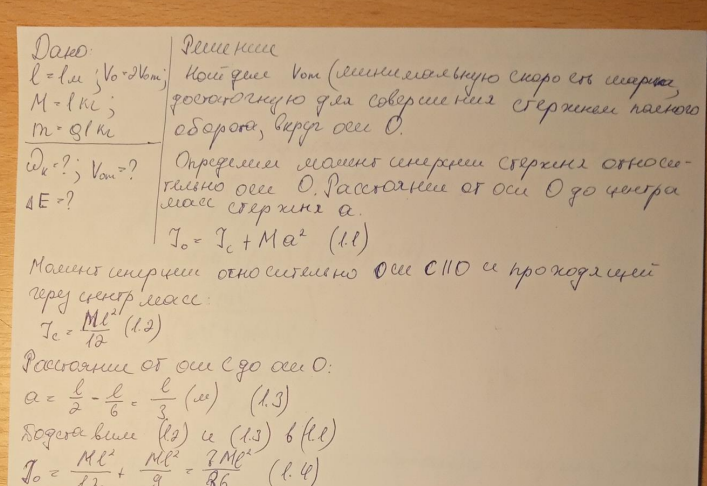 Дано:
l = 1м ; V₀ = 2V₀m ;
M = 1 кг ;
m = 0,1 кг
ω_k = ? ; V₀m = ?
ΔE = ?
Решение
Найдём V₀m (минимальную скорость шарика,
достаточную для совершения стержнем полного
оборота, вкруг оси О.
Определим момент инерции стержня относи-
тельно оси О. Расстояние от оси О до центра
масс стержня a.
J₀ = J_c + Ma² (1.1)
Момент инерции относительно оси C||O и проходящей
через центр масс:
J_c = Ml²/12 (1.2)
Расстояние от оси C до оси О:
a = l/2 - l/6 = l/3 (м) (1.3)
Подставим (1.2) и (1.3) в (1.1)
J₀ = Ml²/12 + Ml²/9 = 7Ml²/36 (1.4)